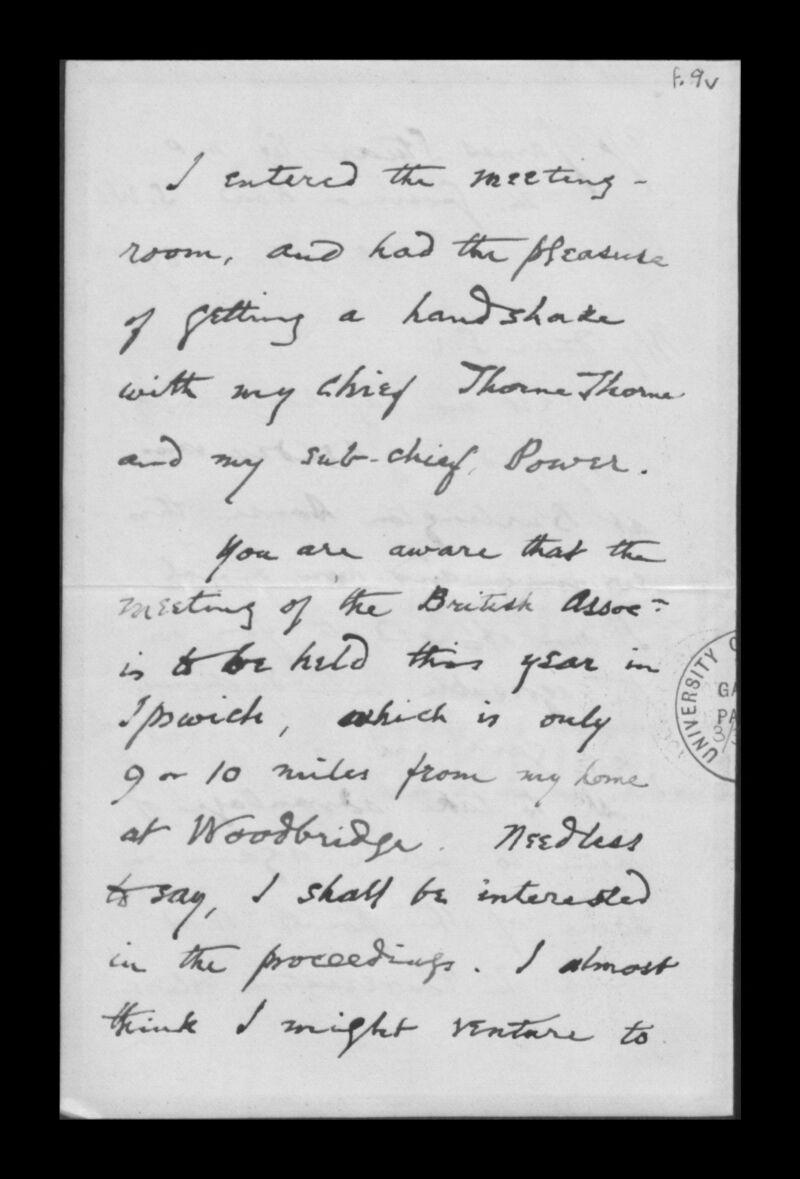 f.9v
I entered the meeting-
room, and had the pleasure
of getting a handshake
with my chief Thorne Thorne
and my sub-chief, Power.
You are aware that the
meeting of the British Assocn
is to be held this year in
Ipswich, which is only
9 or 10 miles from my home
at Woodbridge. Needless
to say, I shall be interested
in the proceedings. I almost
think I might venture to
UNIVERSITY